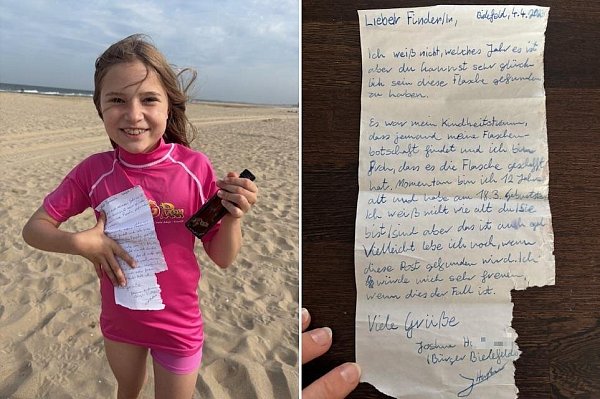 Lieber Finder/in,
Bielefeld, 4.4.
Ich weiß nicht, welches Jahr es ist
aber du kannst sehr glück
lich sein diese Flasche gefunden
zu haben.
Es war mein Kindheitstraum,
dass jemand meine Flaschen-
botschaft findet und ich bin
froh, dass es die Flasche geschafft
hat. Momentan bin ich 12 Jahre
alt und habe am 18.3. Geburtstag
Ich weiß nicht wie alt du/Sie
bist/sind aber das ist auch egal
Vielleicht lebe ich noch, wenn
diese Post gefunden wird. Ich
würde mich sehr freuen,
wenn dies der Fall ist.
Viele Grüße
Joshua H
(Bürger Bielefelds